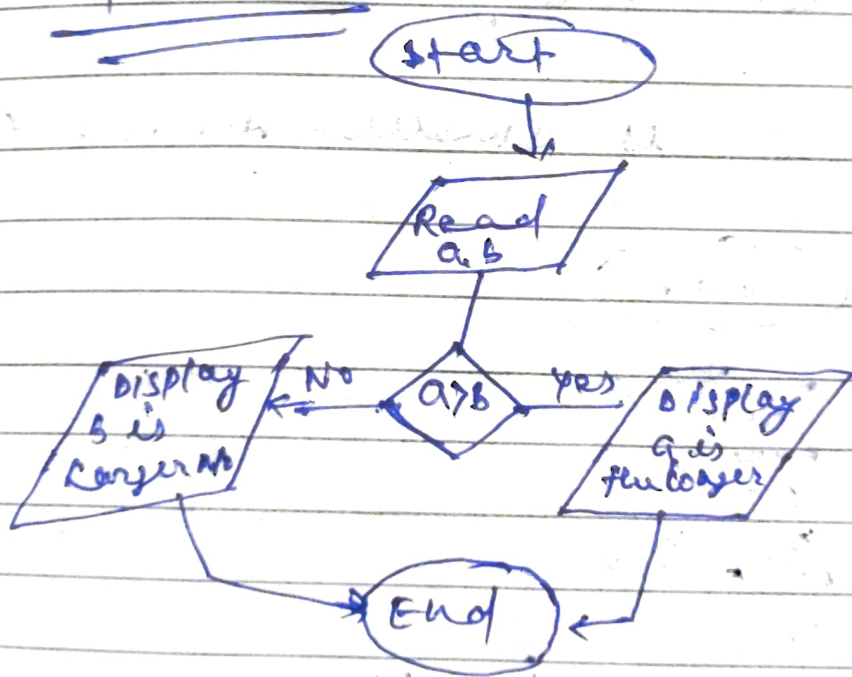 Start
Read
a, b
a>b
No
Yes
Display
b is
Larger No
Display
a is
the larger
End